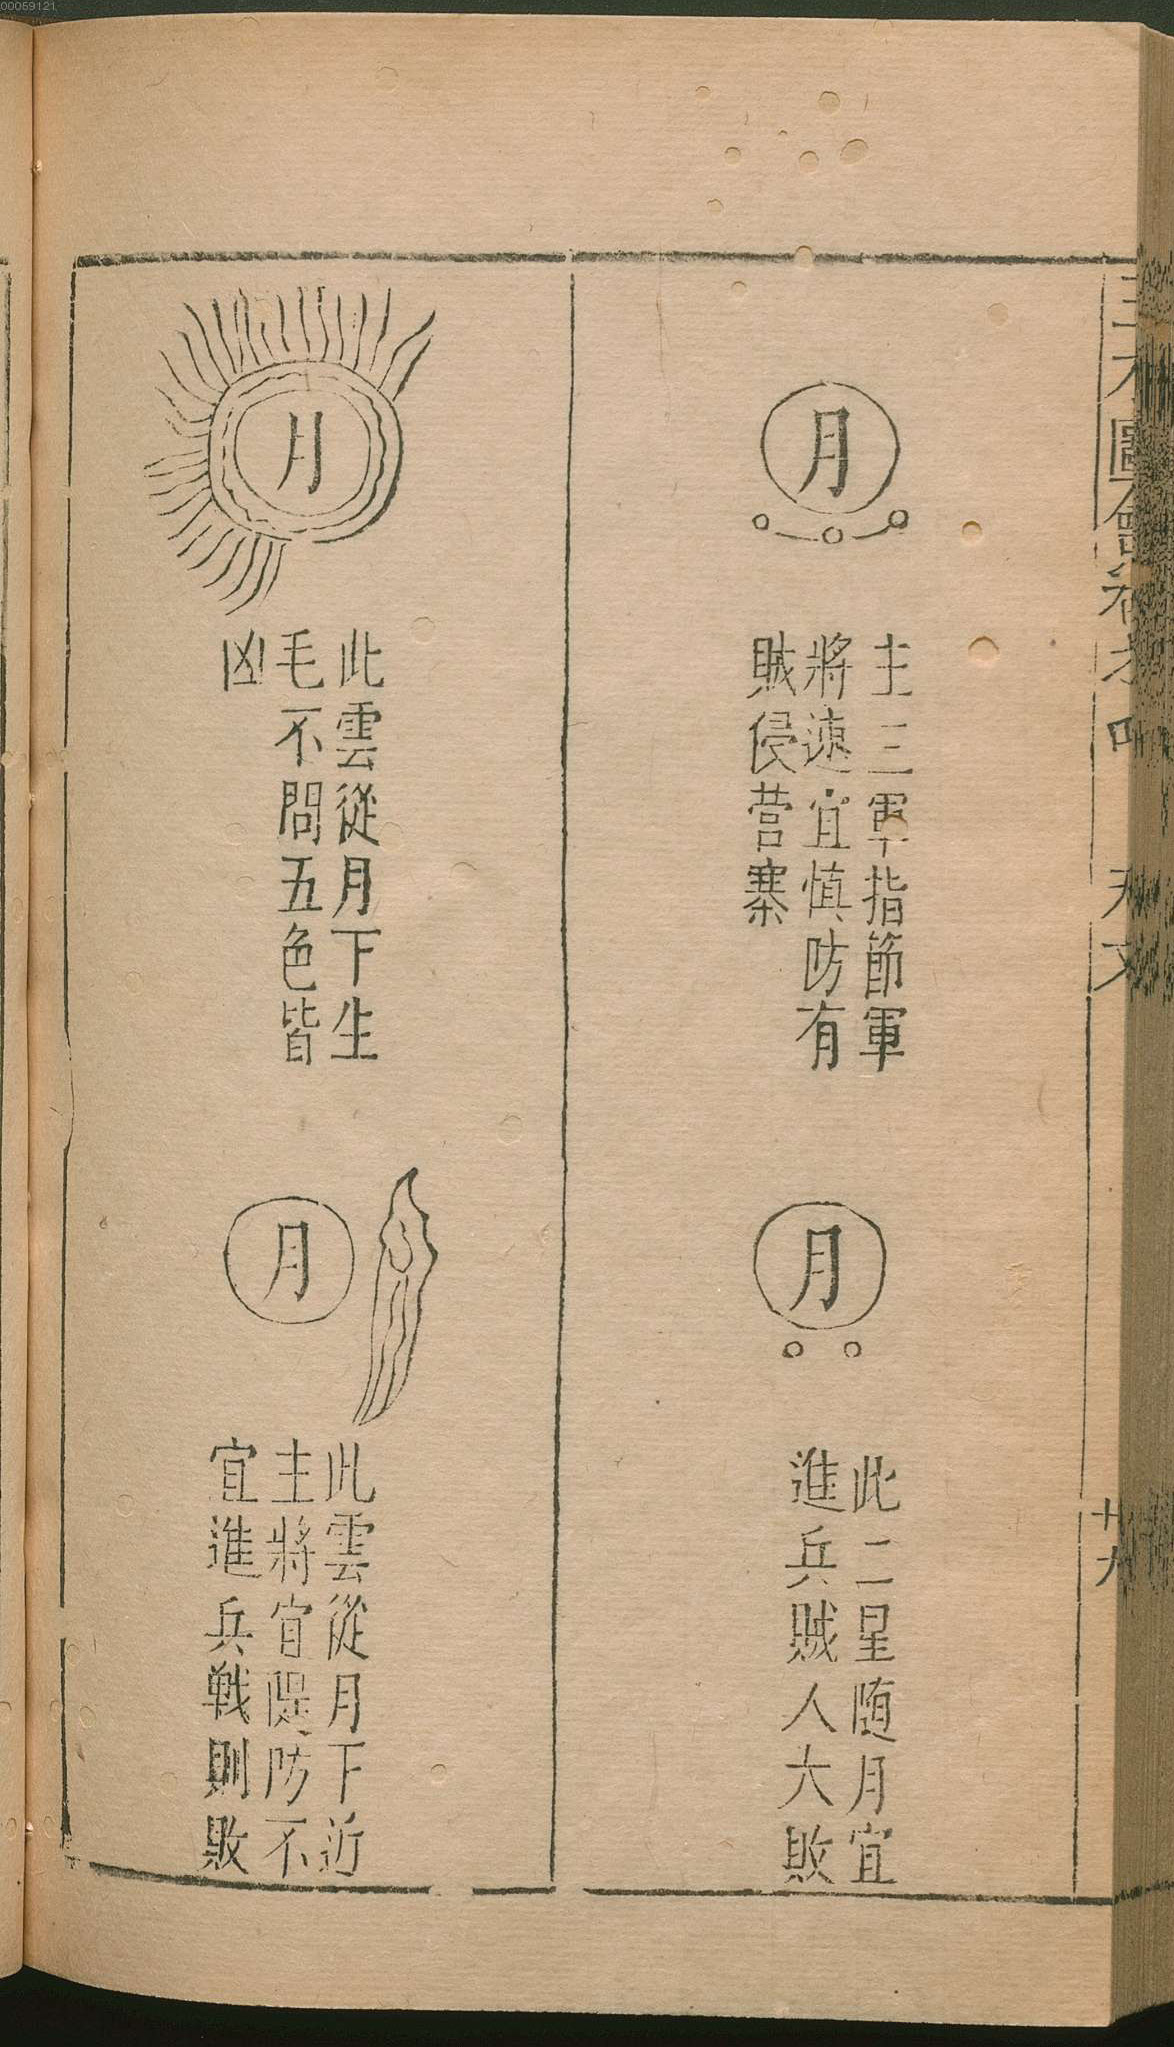 00059121
三才圖會卷之四 天文 廿九
月
主三軍指節軍
將速宜慎防有
賊侵营寨
月
此二星随月宜
進兵賊人大敗
月
此雲從月下生
毛不問五色皆
凶
月
此雲從月下近
主將宜隄防不
宜進兵戦則敗